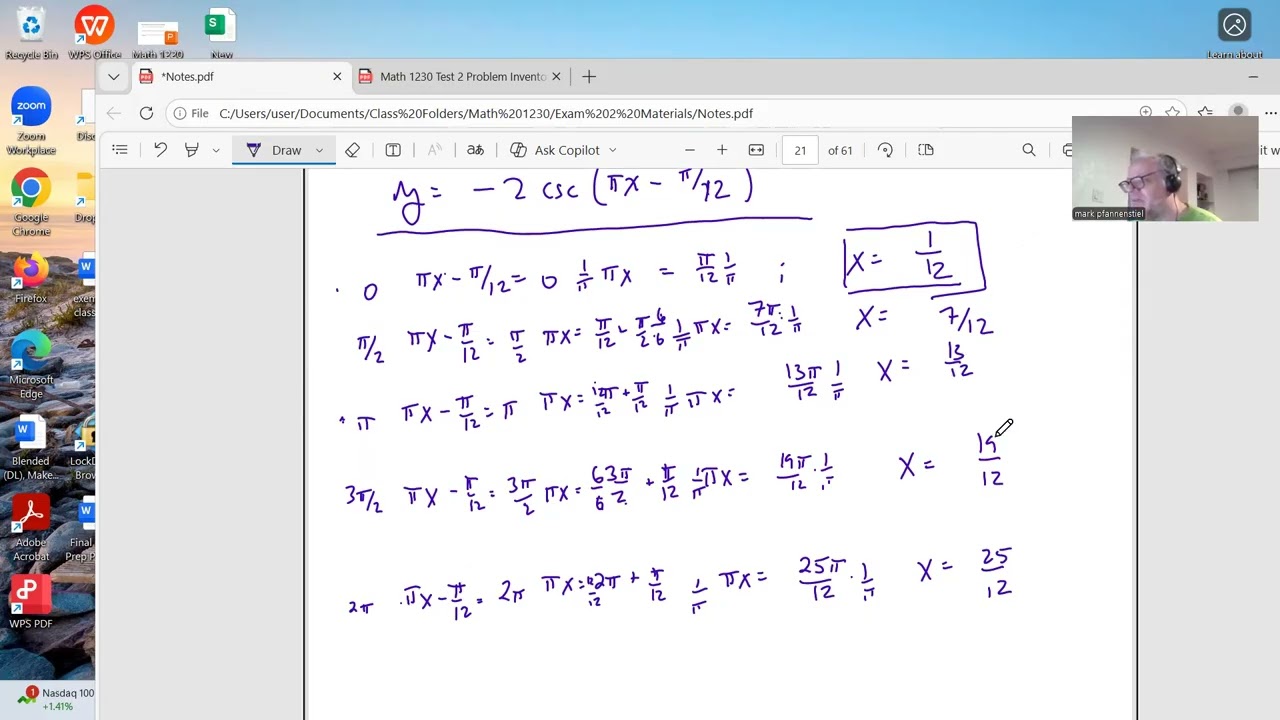 Recycle Bin
WPS Office
Math 1220
New
Learn about
*Notes.pdf
Math 1230 Test 2 Problem Invento
File
C:/Users/user/Documents/Class%20Folders/Math%201230/Exam%202%20Materials/Notes.pdf
Zoom Workplace
Draw
Ask Copilot
21 of 61
it w
mark pfannenstiel
Google Chrome
Drop
Firefox
exen class
Microsoft Edge
Blended (DL), Make...
LockD Br
Adobe Acrobat
Final Prep P
WPS PDF
1 Nasdaq 100
+1.41%
y = -2 csc (πx - π/12)
0 πx - π/12 = 0 1/π πx = π/12 1/π ; x = 1/12
π/2 πx - π/12 = π/2 πx = π/12 + π/2 · 6/6 1/π πx = 7π/12 · 1/π x = 7/12
π πx - π/12 = π πx = 12π/12 + π/12 1/π πx = 13π/12 1/π x = 13/12
3π/2 πx - π/12 = 3π/2 πx = 6/6 3π/2 + π/12 1/π πx = 19π/12 · 1/π x = 19/12
2π πx - π/12 = 2π πx = 12/12 2π + π/12 1/π πx = 25π/12 · 1/π x = 25/12